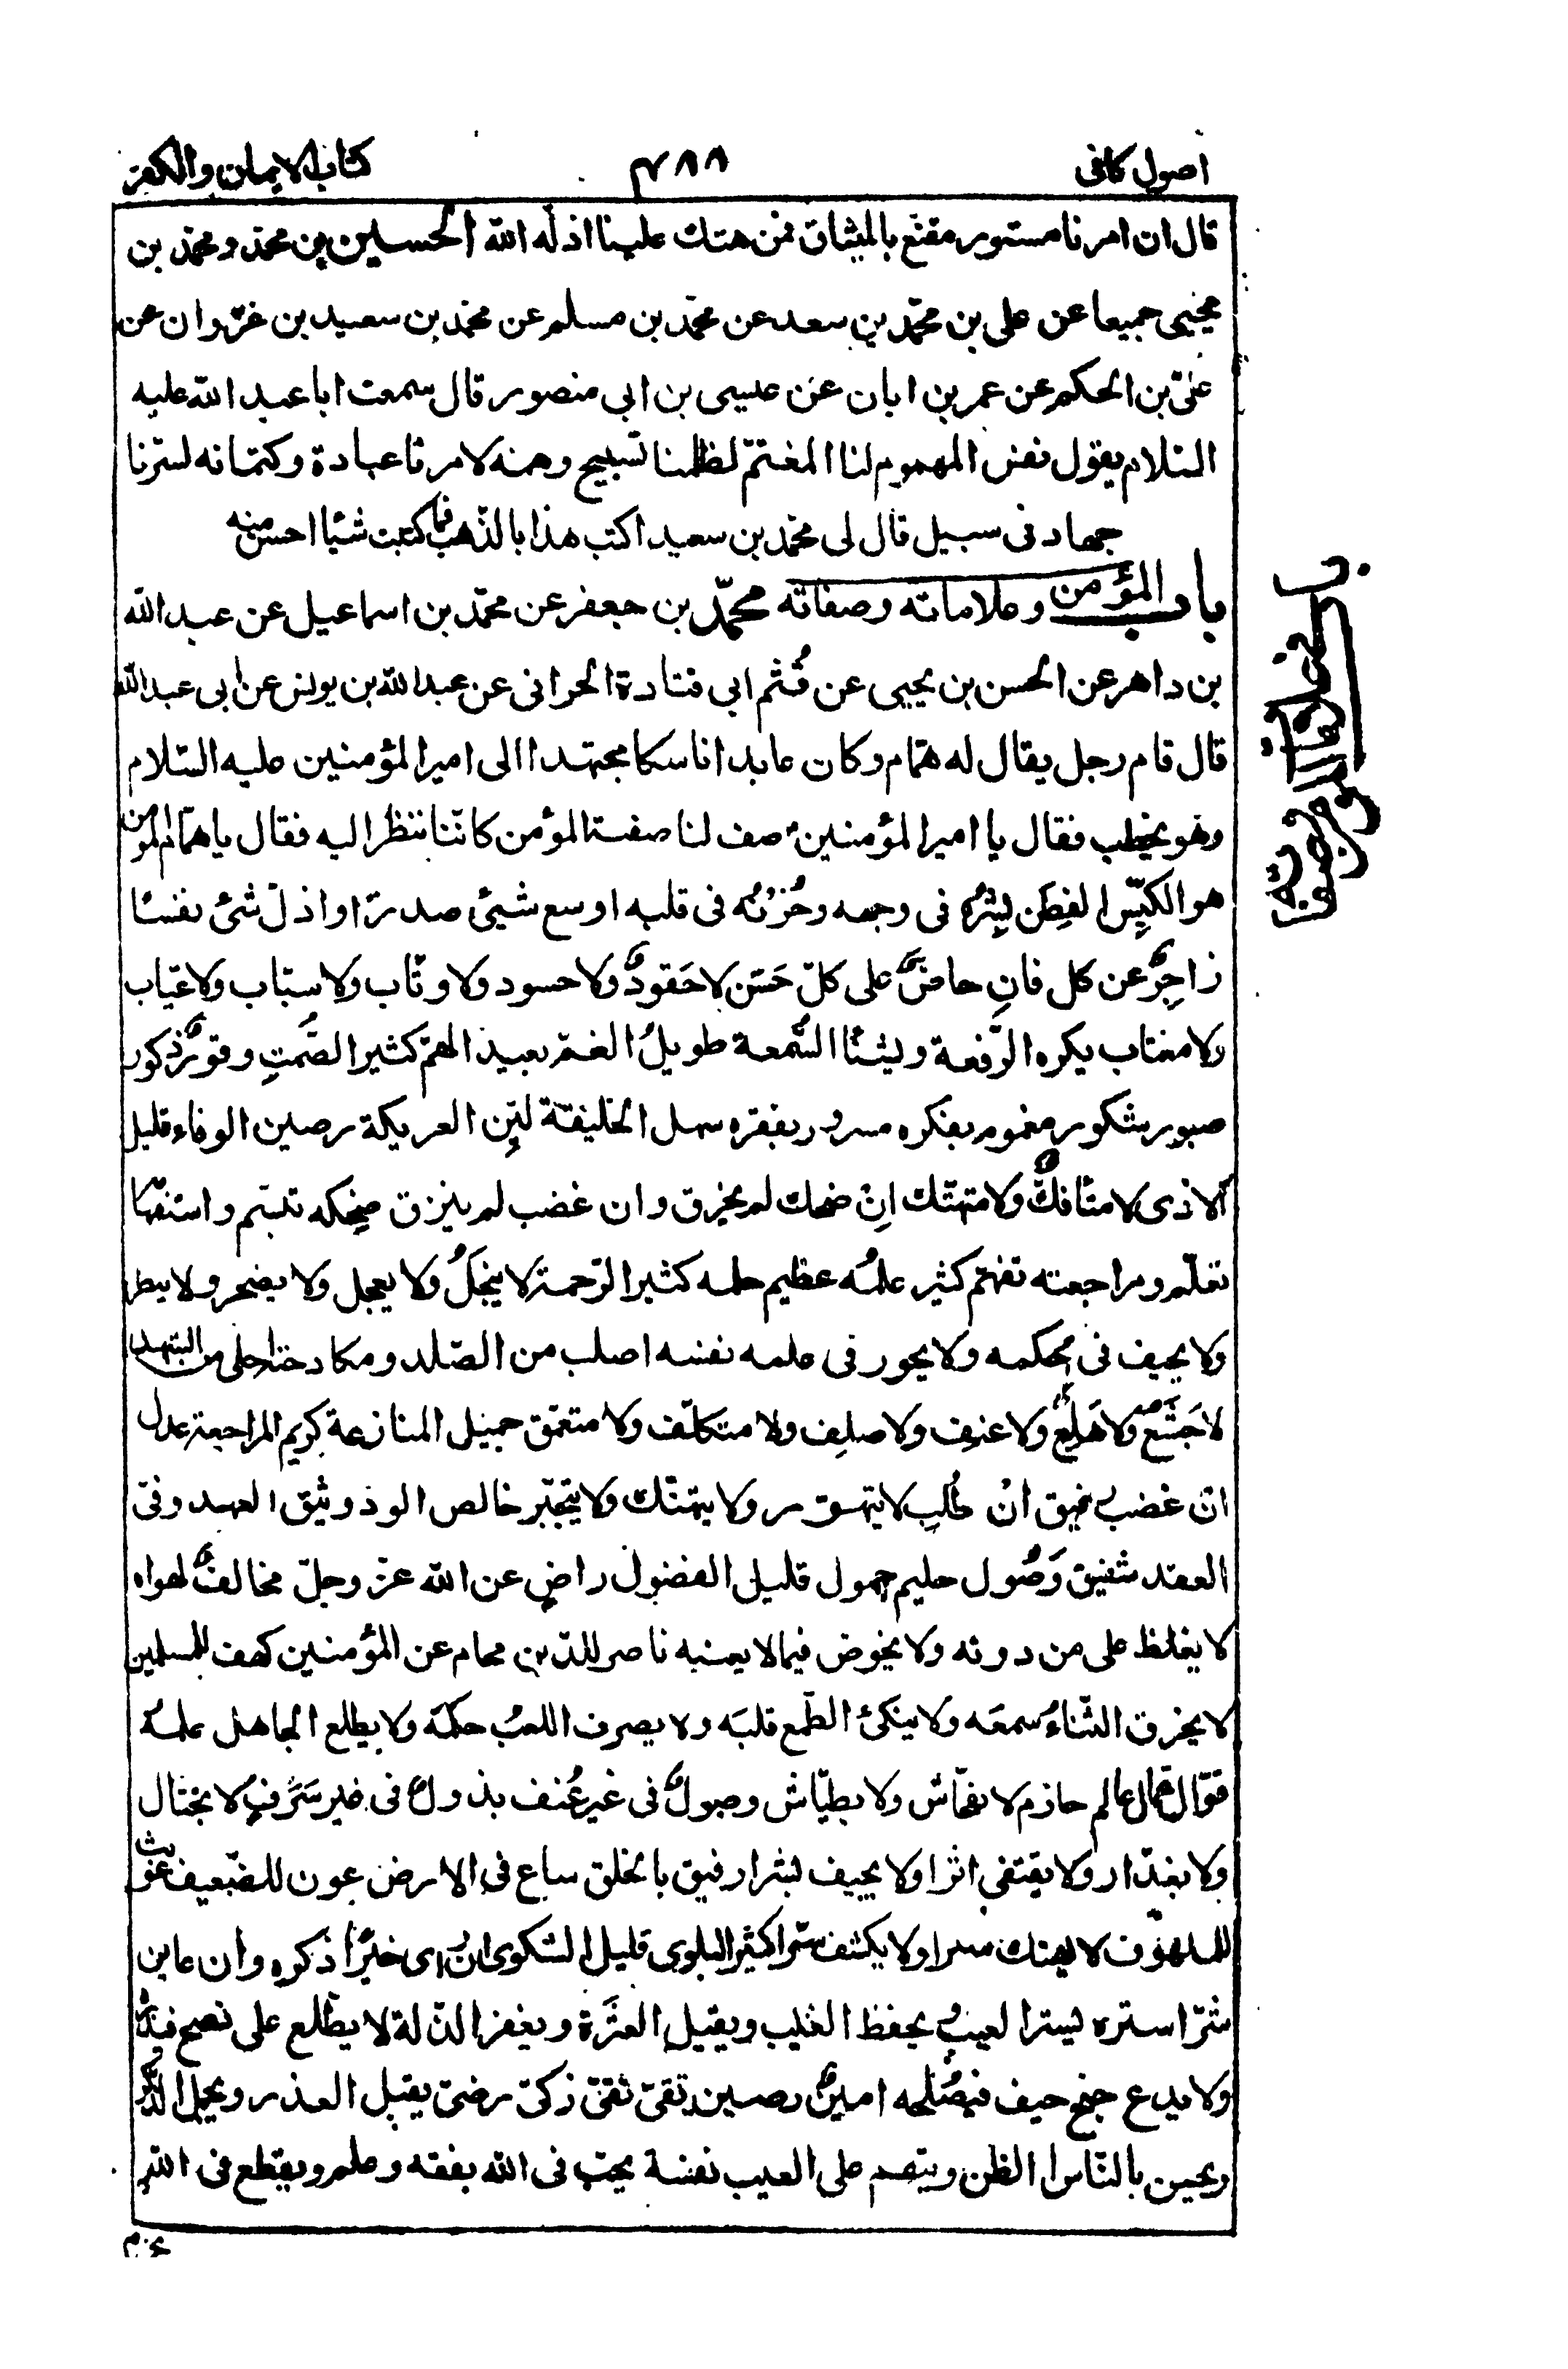 اصول كافى
٤٨٨
كتاب الايمان والكفر
قال ان امرنا مستور مقنّع بالميثاق فمن هتك علينا اذلّه الله الحسين بن محمّد ومحمّد بن
يحيى جميعا عن على بن محمّد بن سعد عن محمّد بن مسلم عن محمّد بن سعيد بن غزوان عن
علىّ بن الحكم عن عمر بن ابان عن عيسى بن ابى منصور قال سمعت ابا عبد الله عليه
السّلام يقول نفس المهموم لنا المغتمّ لظلمنا تسبيح وهمّه لامرنا عبادة وكتمانه لسرّنا
جهاد فى سبيل قال لى محمّد بن سعيد اكتب هذا بالذّهب فما كتبت شيئا احسن منه
باب المؤمن وعلاماته وصفاته محمّد بن جعفر عن محمّد بن اسماعيل عن عبد الله
بن داهر عن الحسن بن يحيى عن قُثم ابى قتادة الحرانى عن عبد الله بن يونس عن ابى عبد الله
قال قام رجل يقال له همّام وكان عابدا ناسكا مجتهدا الى امير المؤمنين عليه السّلام
وهو يخطب فقال يا امير المؤمنين صف لنا صفة المؤمن كانّنا ننظر اليه فقال يا همّام المؤمن
هو الكيّس الفطِن بِشره فى وجهه وحُزنُه فى قلبه اوسع شيئى صدرًا واذلّ شئ نفسًا
زاجِرٌ عن كل فانٍ حاضٌّ على كلّ حَسَن لا حَقودٌ ولا حسود ولا وثّاب ولا سبّاب ولا عيّاب
ولا مغتاب يكره الرّفعة ويشنأ السُّمعة طويلُ الغمّ بعيد الهمّ كثير الصَّمتِ وقورٌ ذكور
صبور شكور مغموم بفكره مسرور بفقره سهل الخليقة ليّن العريكة رصين الوفاء قليل
الاذى لا متافّكٌ ولا متهتّك ان ضحك لم يخرق وان غضب لم ينزق ضحكه تبسّم واستفها
تعلّم ومراجعته تفهّم كثير علمُه عظيم حلمه كثير الرّحمة لا يبخَلُ ولا يعجل ولا يضجر ولا يبطر
ولا يحيف فى حكمه ولا يجور فى علمه نفسه اصلب من الصّلد ومكادحته احلى من الشهد
لا جَشِعٌ ولا هَلِعٌ ولا عنِف ولا صلِف ولا متكلّف ولا متعمّق جميل المنازعة كريم المراجعة عدل
ان غضب رفيق انْ طُلب لا يتهوّر ولا يتهتّك ولا يتجبّر خالص الودّ وثيق العهد وفىّ
العقد شفيق وَصُول حليم حمول قليل الفضول راضٍ عن الله عزّ وجلّ مخالفٌ لهواه
لا يغلظ على من دونه ولا يخوض فيما لا يعنيه ناصر للدّين محام عن المؤمنين كهف للمسلمين
لا يخرق الثّناءُ سمعَه ولا ينكئ الطّمع قلبَه ولا يصرف اللعبُ حكمَه ولا يطلع الجاهل علمَه
قوّال عمّال عالم حازم لا بفحّاش ولا بطيّاش وصولٌ فى غير عُنف بذولٌ فى غير سَرَفٍ لا بختال
ولا بغدّار ولا يقتفى اثرًا ولا يحيف بشرا رفيق بالخلق ساع فى الارض عون للضّعيف غوث
للملهوف لا يهتك سترا ولا يكشف سرّا كثير البلوى قليل الشكوى ان راى خيرًا ذكره وان عاين
شرّا ستره يستر العيب يحفظ الغيب ويقيل العثرة ويغفر الذّلة لا يطّلع على نصح فيذره
ولا يدع جنح حيف فيصُلحه امينٌ رصين تقىّ نقىّ زكىّ رضىّ يقبل العذر ويجمل الذكر
ويحسن بالنّاس الظن ويتهم على العيب نفسه يحبّ فى الله بفقه وعلم ويقطع فى الله